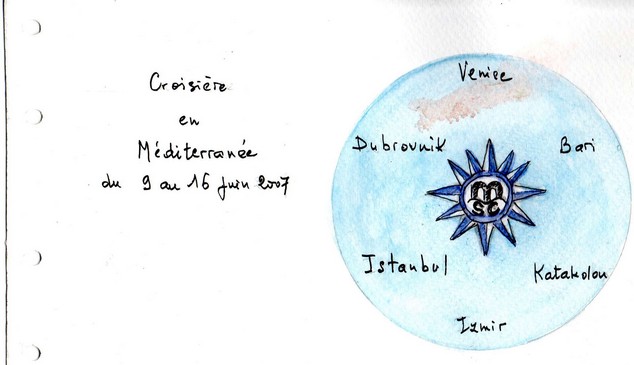 Croisière
en
Méditerranée
du 9 au 16 juin 2007
Venise
Dubrovnik
Bari
msc
Istanbul
Katakolon
Izmir